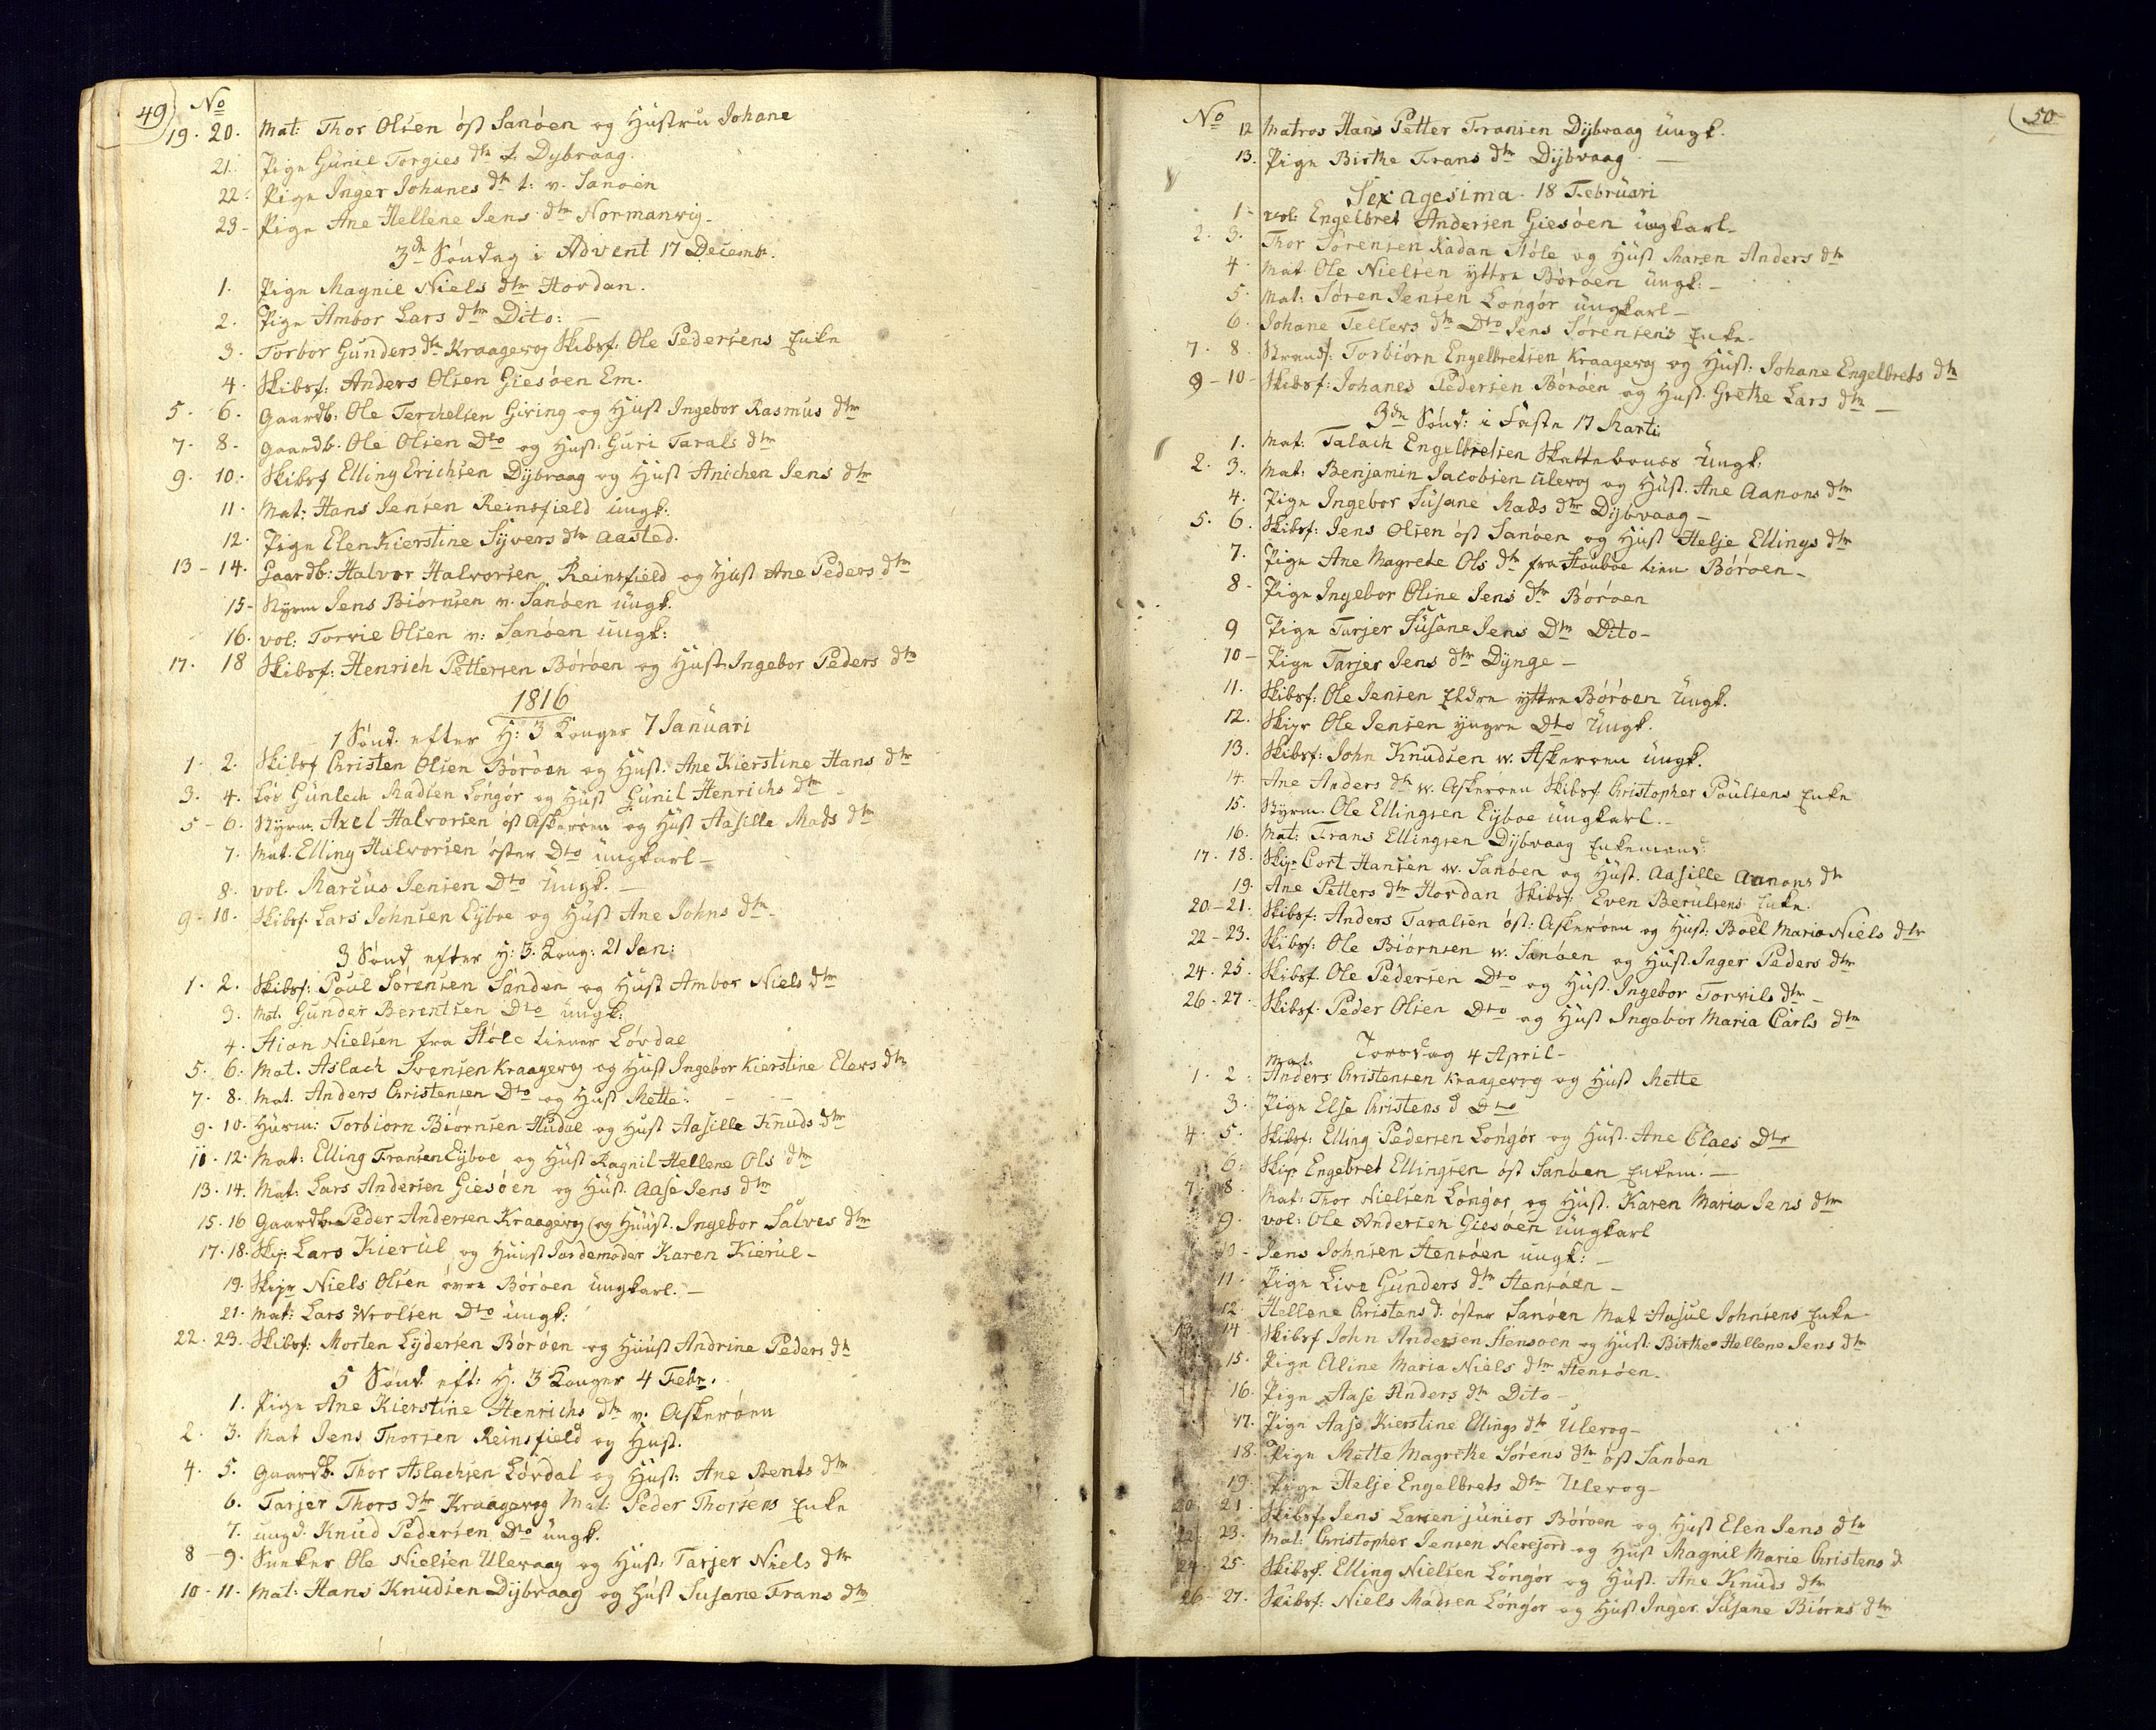 49
No
19. 20. Mat: Thor Olsen öst Sanöen og Hustru Johane
21. Pige Gunil Torgies dtr f. Dybvaag.
22. Pige Inger Johanes dtr t: v. Sanöen
23- Pige Ane Hellene Jens dtr Normanvig-
3de Söndag i Advent 17 Decembr.
1. Pige Magnil Niels dtr Hovdan.
2. Pige Ambor Lars dtr Dito: -
3. Torbor Gunders dtr Kraagevog Skibsf. Ole Pedersens Enke
4. Skibsf: Anders Olsen Giesöen Em.
5. 6. Gaardb: Ole Terchelsen Giving og Hust Ingebor Rasmus dtr
7. 8. Gaardb. Ole Olsen Dto og Hust: Guri Tarals dtr
9. 10. Skibsf Elling Erichsen Dijbvaag og Hust Anichen Jens dtr
11. Mat: Hans Jensen Reinsfield ungk:
12. Pige Elen Kierstine Sijvers dtr Aasted.
13-14. Gaardb: Halvor Halvorsen Reinsfield og Hust Ane Peders dtr
15- Styrm Jens Biörnsen v. Sanöen ungk.
16. vol: Torvie Olsen v: Sanöen ungk:
17. 18 Skibsf: Henrich Pettersen Böröen og Hust. Ingebor Peders dtr
1816
1 Sönd. efter H: 3 Konger 7 Januari
1. 2. Skibsf Christen Olsen Böröen og Hust. Ane Kierstine Hans dtr
3. 4. Los Gunlech Madsen Löngör og Hust Gunil Henrichs dtr
5-6. Styrm. Axel Halvorsen öst Askeröen og Hust Aasille Mads dtr
7. Mat. Elling Halvorsen öster Dto ungkarl-
8. vol. Marcus Jensen Dto Ungk. -
9-10. Skibsf. Lars Johnsen Eijboe og Hust Ane Johns dtr
3 Sönd efter H: 3. Kong: 21 Jan:
1. 2. Skibsf: Poul Sörensen Sanden og Hust Ambor Niels dtr
3. Mat. Gunder Berentsen Dto ungk:
4. Stian Nielsen fra Stöle Liener Lövdal
5. 6. Mat. Aslach Svensen Kraagevog og Hust Ingebor Kierstine Elevs dtr
7. 8. Mat. Anders Christensen Dto og Hust Mette: - -
9. 10. Huusm: Torbiorn Biörnsen Hudal og Hust Aasille Knuds dtr
11. 12. Mat: Elling Fransen Eijboe og Hust Ragnil Hellene Ols dtr
13. 14. Mat: Lars Andersen Giesöen og Hust. Aase Jens dtr
15. 16 Gaardbr Peder Andersen Kraagevog og Huust. Ingebor Salves dtr
17. 18. Skip Lars Kierul og Huust Jordemoder Karen Kierul-
19. Skipr Niels Olsen övre Böröen ungkarl.-
21. Mat: Lars Wrolsen Dto ungk:
22. 23. Skibsf: Morten Lydersen Böröen og Huust Andrine Peders dtr
5 Sönd. eft: H. 3 Konger 4 Febr.
1. Pige Ane Kierstine Henrichs dtr v. Askeröen
2. 3. Mat Jens Thorsen Reinsfield og Hust.
4. 5. Gaardb. Thor Aslachsen Lövdal og Hust: Ane Bents dtr
6. Tarjer Thors dtr Kraagevog Mat: Peder Thorsens Enke
7. ungd. Knud Pedersen Dto ungk.
8-9. Sneker Ole Nielsen Ulevaag og Hust: Tarjer Niels dtr
10-11. Mat: Hans Knudsen Dijbvaag og Hust Susane Frans dtr
50
No
12 Matros Hans Petter Fransen Dijbvaag ungk.
13. Pige Birthe Frans dtr Dijbvaag -
Sexagesima 18 Februari
1- vol: Engelbret Andersen Giesöen ungkarl-
2. 3. Thor Sörensen Radan Stöle og Hust Maren Anders dtr
4. Mat Ole Nielsen yttre Böröen ungk:-
5. Mat: Sören Jensen Longör ungkarl-
6. Johane Tellevs dtr Dto Jens Sörensens Enke-
7. 8. Torbiörn Engelbretsen Kraagevog og Hust: Johane Engelbrets dtr
9-10- Skibsf: Johanes Pedersen Böröen og Hust. Grethe Lars dtr -
3de Sönd: i Faste 17 Marti
1. Mat: Talach Engelbretsen Skattebonas Ungk:
2. 3. Mat: Benjamin Jacobsen Ulevog og Hust. Ane Aanons dtr
4. Pige Ingebor Susane Mads dtr Dijbvaag-
5. 6. Skibsf: Jens Olsen öst Sanöen og Hust Helje Ellings dtr
7. Pige Ane Magrete Ols dtr fra Houboe Lien Böröen-
8- Pige Ingebor Oline Jens dtr Böröen
9 Pige Tarjer Susane Jens Dtr Dito-
10- Pige Tarjer Jens dtr Dynge-
11. Skibsf: Ole Jensen Eldre yttre Böröen Ungk.
12. Skipr Ole Jensen yngre Dto Ungk.
13. Skibsf: John Knudsen w. Askeröen ungk.
14. Ane Anders dtr w. Askeröen Skibsf Christopher Poulsens Enke
15. Styrm. Ole Ellingsen Eijboe ungkarl.-
16. Mat: Frans Ellingsen Dijbvaag Enkemand:
17. 18. Skipr Cort Hansen w. Sanöen og Hust. Aasille Aanons dtr
19. Ane Petters dtr Hovdan Skibsf. Even Berulsens Enke.
20-21. Skibsf: Anders Taralsen öst: Askeröen og Hust: Boel Maria Niels dtr
22-23. Skibsf: Ole Biörnsen w. Sanöen og Hust. Inger Peders dtr
24. 25. Skibsf. Ole Pedersen Dto og Hust. Ingebor Torvils dtr -
26-27. Skibsf. Peder Olsen Dto og Hust Ingebor Maria Carls dtr
Torsdag 4 April-
1. 2. Mat. Anders Christensen Kraagevog og Hust Mette
3. Pige Else Christens d Dto
4. 5. Skibsf: Elling Pedersen Longör og Hust. Ane Claes Dtr
6. Skip Engebret Ellingsen öst Sanöen Enkem: -
7. 8. Mat: Thor Nielsen Löngör og Hust. Karen Maria Jens dtr
9. vol: Ole Andersen Giesöen ungkarl
10- Jens Johnsen Stensöen ungk: -
11. Pige Live Gunders dtr Stensöen-
12. Hellene Christens d: öster Sanöen Mat Aasul Johnsens Enke
13. 14 Skibsf John Andersen Stensoen og Hust: Birthe Hellene Jens dtr
15. Pige Oline Maria Niels dtr Stensöen.
16. Pige Aase Anders dtr Dito-
17. Pige Aase Kierstine Ellings dtr Ulevog-
18. Pige Mette Magrethe Sörens dtr öst Sanöen
19. Pige Helje Engelbrets Dtr Ulevog-
20 21. Skibsf. Jens Larsen junior Böröen og Hust Elen Jens dtr
22. 23. Mat: Christopher Jensen Nerejord og Hust Magnil Marie Christens d.
24. 25. Skibsf. Elling Nielsen Löngör og Hust. Ane Knuds dtr
26-27. Skibsf: Niels Madsen Löngör og Hust Inger Susane Biörns dtr